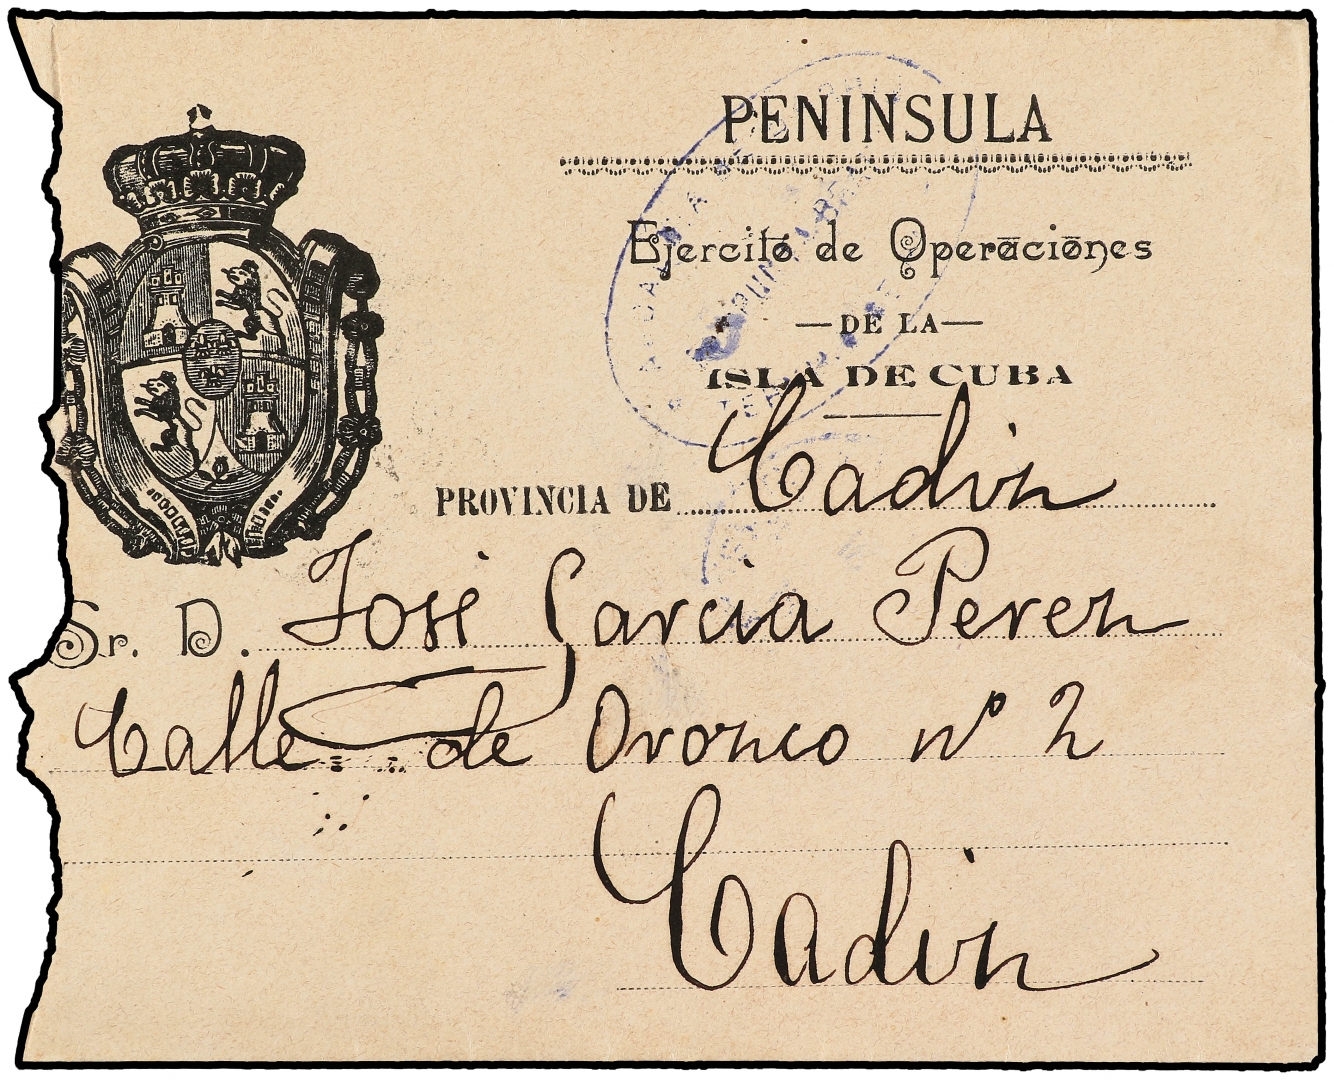 PENINSULA
Ejercito de Operaciones
—DE LA—
ISLA DE CUBA
PROVINCIA DE Cadiz
Sr. D. José Garcia Perez
Calle de Orozco nº 2
Cadiz